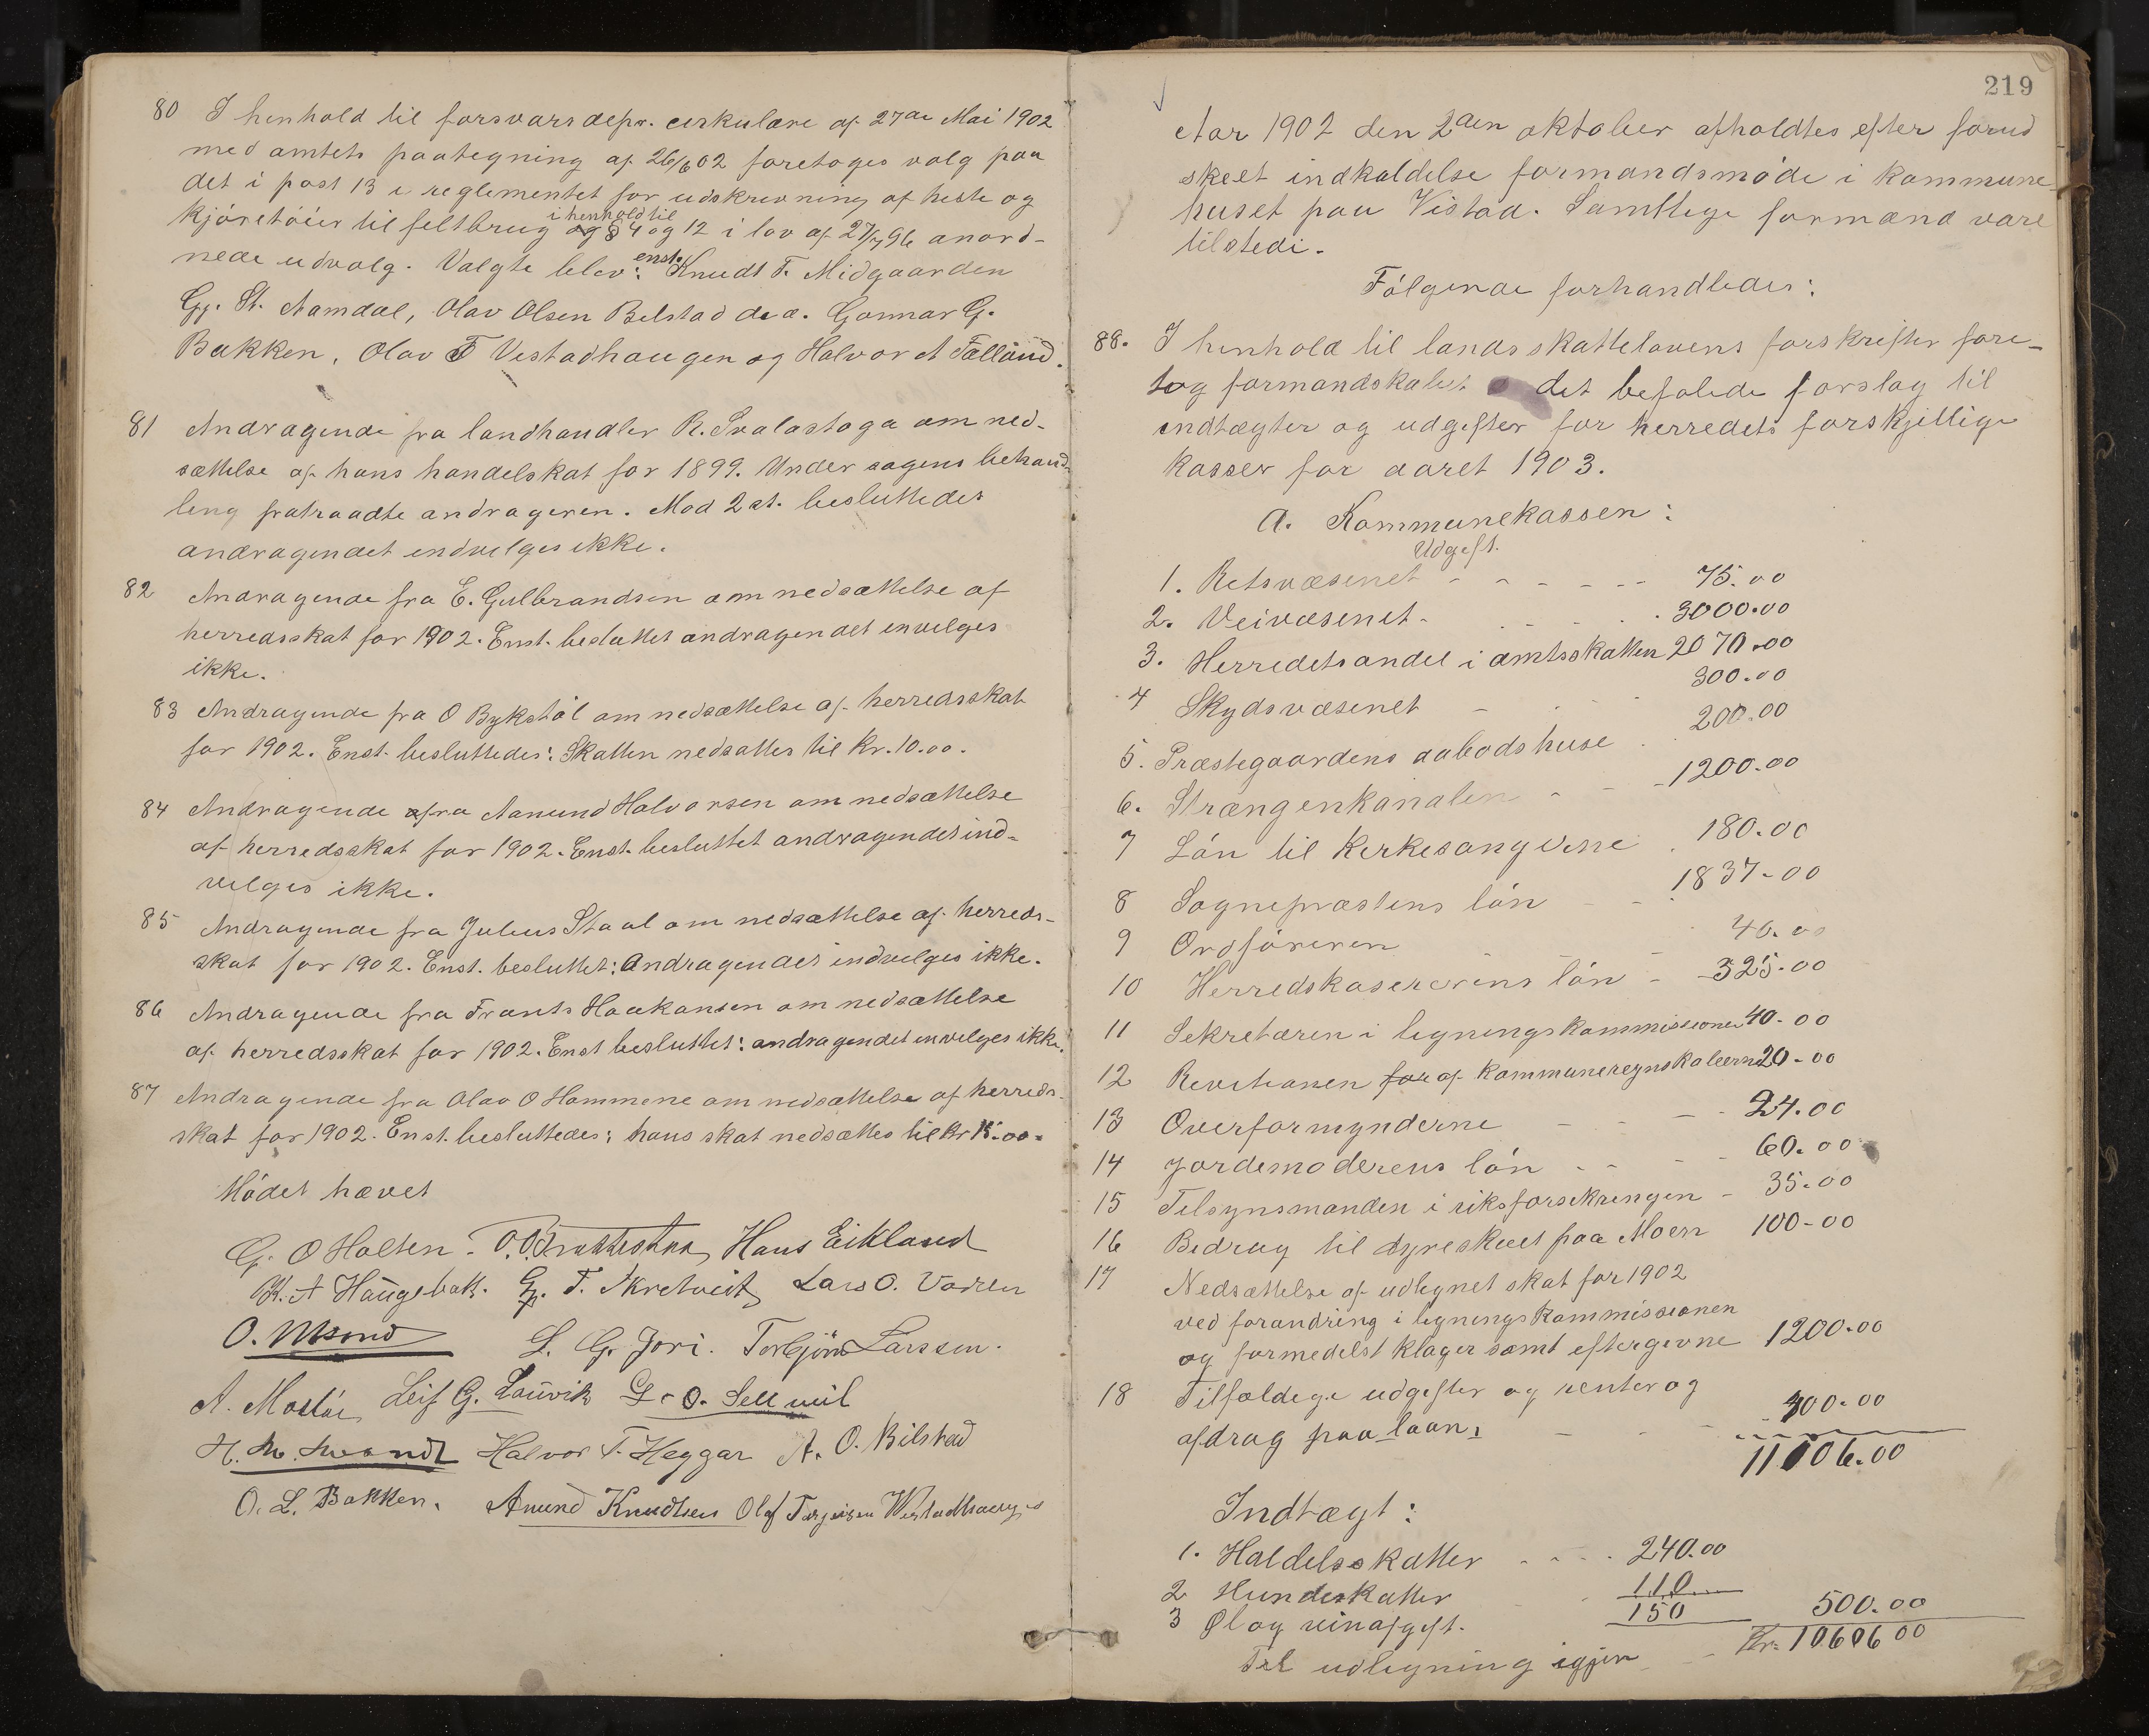 80 I henhold til forsvarsdepr. cirkulære af 27de Mai 1902
med amtets paategning af 26/6 02 foretoges valg paa
det i post 13 i reglementet for udskrivning af heste og
kjóretóier til feltbrug i henhold til § 4 og 12 i lov af 27/7 96 anord-
nede udvalg. Valgte blev: enst. Knudt T. Midgaarden
Gj. St. Aamdal, Olav Olsen Belstad d.e.d. Gunnar G.
Bakken, Olav T Vestadhaugen og Halvor A Fælland.
81 Andragende fra landhandler R. Svalastoga om ned-
sættelse af hans handelskat for 1899. Under sagens behand-
ling fratraadte andrageren. Mod 2 st. besluttedes
andragendet indvilges ikke.
82 Andragende fra E. Gulbrandsen om nedsættelse af
herredsskat for 1902. Enst. besluttet andragendet invilges
ikke.
83 Andragende fra O Bykstól om nedsættelse af herredsskat
for 1902. Enst. besluttedes: Skatten nedsattes til Kr. 10.00.
84 Andragende fra Aanund Halvorsen om nedsættelse
af herredsskat for 1902. Enst. besluttet andragendet ind-
vilges ikke.
85 Andragende fra Julius Staal om nedsættelse af herreds-
skat for 1902. Enst. besluttet: Andragendet indvilges ikke.
86 Andragende fra Frants Haakonsen om nedsættelse
af herredsskat for 1902. Enst besluttet: andragendet invilges ikke.
87 Andragende fra Olav O Hommene om nedsættelse af herreds-
skat for 1902. Enst. besluttedes: hans skat nedsættes til Kr 15.00.
Módet hævet
G. O Holten. Hans Eikland
K. A Haugebak. G. T. Skretveit, Lars O. Vaden
O. L. G. Jori. Torbjórn Larssen.
A. Leif G. Lauvik
Halvor T. Heggar A. O. Bilstad
O. L. Bakken. Anund Knudtsen Olaf
219
Aar 1902 den 2den oktober afholdtes efter forud
skeet indkaldelse formandsmóde i kommune-
huset paa Vistad. Samtlige formænd vare
tilstede.
Fólgende forhandledes:
88. I henhold til landsskattelovens forskrifter fore-
tog formandskabet det befalede forslag til
indtægter og udgifter for herredets forskjellige
kasser for aaret 1903.
A. Kommunekassen:
Udgift.
1. Retsvæsenet - - - - - - 75.00
2. Veivæsenet - 3000.00
3. Herredets andel i amtsskatten 2070.00
4 Skydsvæsenet - 300.00
5. Præstegaardens aabodshuse 200.00
6. Strængenkanalen - - - 1200.00
7 Lón til Kirkesangerne 180.00
8 Sognepræstens lón 1837.00
9 Ordfóreren 40.00
10 Herredskasererens lón - 325.00
11 Sekretæren i ligningskommissionen 40.00
12 Revisionen for af kommuneregnskaberne 20.00
13 Overformynderne 24.00
14 Jordemoderens lón - - 60.00
15 Tilsynsmanden i riksforsikringen - 35.00
16 Bidrag til dyreskuet paa Moen 100.00
17 Nedsættelse af udlignet skat for 1902
ved forandring i ligningskommissionen
og formedelst klager samt eftergivne 1200.00
18 Tilfældige udgifter og renter og
afdrag paa laan, 400.00
11106.00
Indtægt:
1. Haldelsskatter - - - - 240.00
2 Hundeskatter 110
3 Øl og vinafgift. 150 500.00
Til udligning igjen Kr. 10606 00